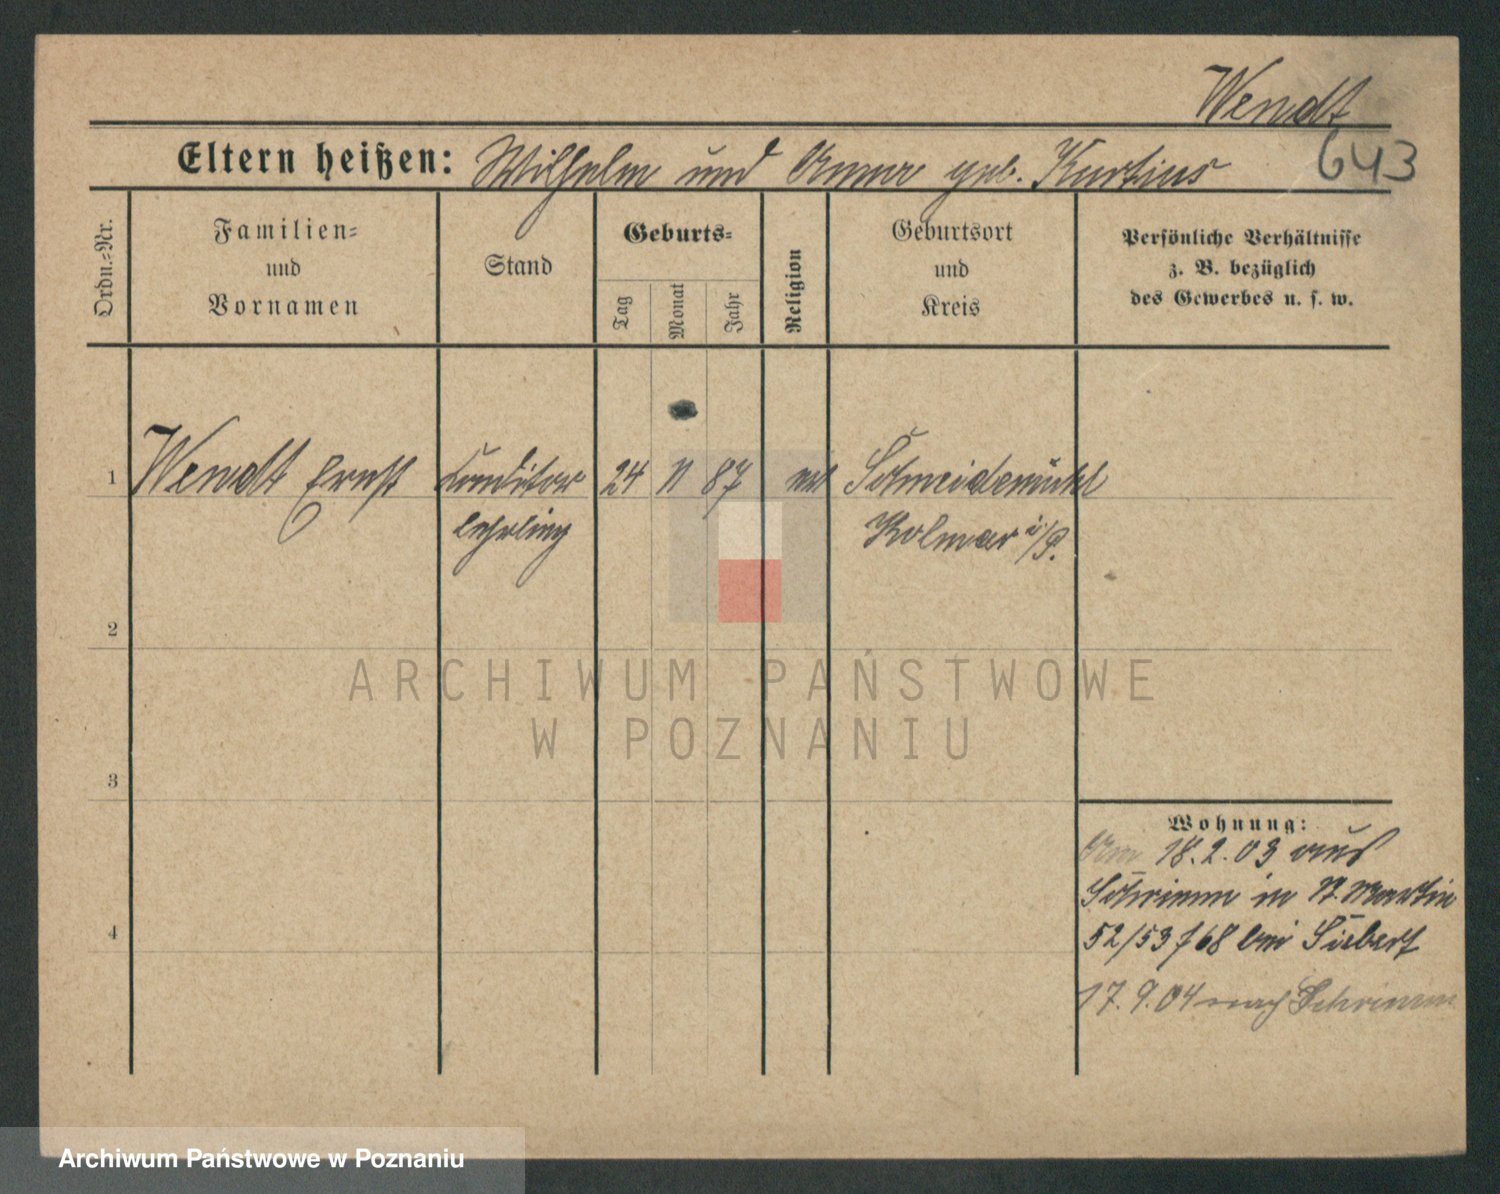 Wendt
643
Eltern heißen: Wilhelm und Anna geb. Kurtius
Ordn.-Nr.
Familien-
und
Vornamen
Stand
Geburts-
Tag
Monat
Jahr
Religion
Geburtsort
und
Kreis
Persönliche Verhältnisse
z. B. bezüglich
des Gewerbes u. s. w.
1 Wendt Ernst Conditor 24 11 87 ev Schneidemühl
lehrling Kolmar i/P.
2
3
4
Wohnung:
Am 18.2.03 aus
Schrimm in St. Martin
52/53 f 68 bei Siebert
17.9.04 nach Schrimm
ARCHIWUM PAŃSTWOWE
W POZNANIU
Archiwum Państwowe w Poznaniu